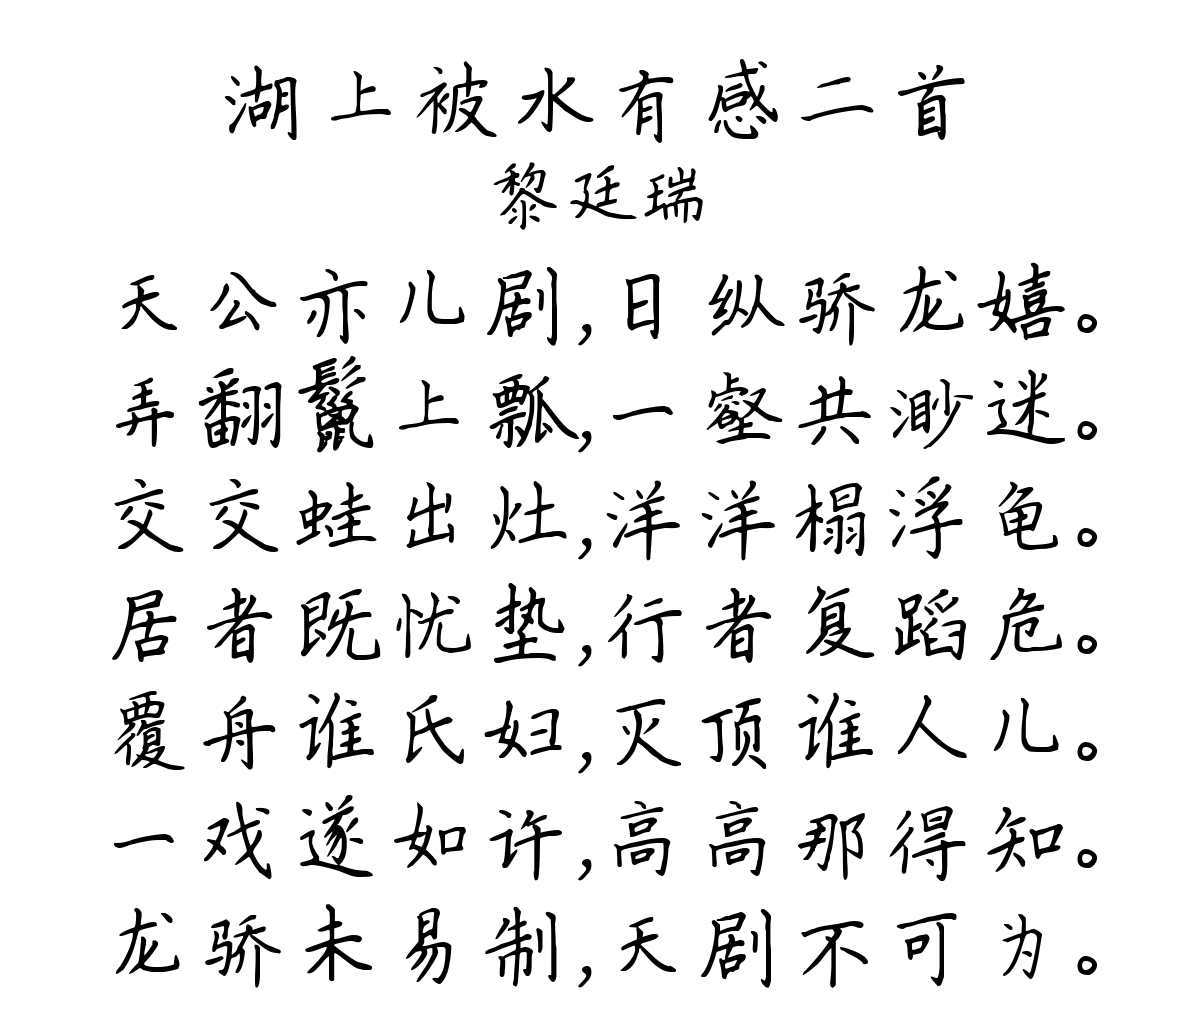 湖上被水有感二首
黎廷瑞
天公亦儿剧,日纵骄龙嬉。
弄翻鬣上瓢,一壑共渺迷。
交交蛙出灶,洋洋榻浮龟。
居者既忧垫,行者复蹈危。
覆舟谁氏妇,灭顶谁人儿。
一戏遂如许,高高那得知。
龙骄未易制,天剧不可为。